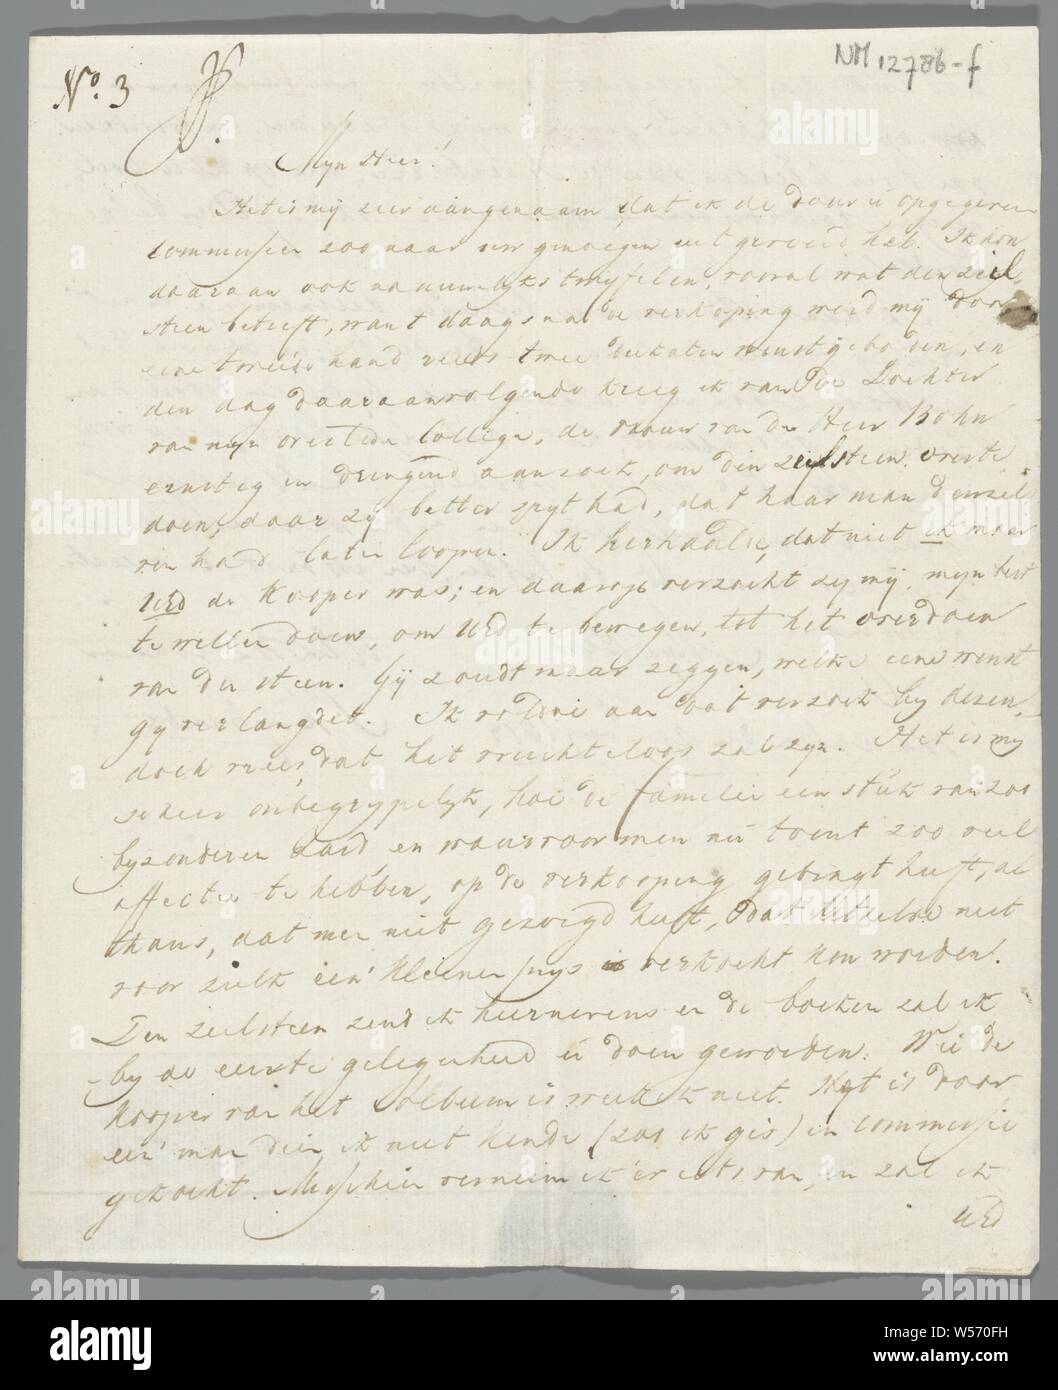 No. 3
NM 12786-f
Mijn Heer!
Het is mij zeer aangenaam, dat ik de door u opgegeven
commissien zoo naar uw genoegen uitgevoerd heb. Ik kon
daaraan ook naauwlyks twyfelen, vooral wat den zeil
steen betreft, want daags na de verkoping werd mij door
eene tweede hand reeds twee dukaten winst geboden, en
den dag daaraanvolgende kreeg ik van de Dochter
van myn overleden Collega, de vrouw van den Heer Bohn
ernstig en dringend aanzoek, om den zeilsteen over te
doen, daar zy bitter spyt had, dat haar man denzel
ven had laten loopen. Ik herhaalde, dat niet ik maar
UEd de Kooper was; en daarop verzocht zy mij, myn best
te willen doen, om UEd te bewegen, tot het overdoen
van den steen. Gij zoudt maar zeggen, welke eene winst
gy verlangdet. Ik voldoe aan dat verzoek by dezen,
doch vrees, dat het vruchteloos zal zyn. Het is my
scheer onbegrypelyk, hoe de familie een stuk van zoo
byzonderen aard en waarvoor men nu toont zoo veel
affectie te hebben, op de verkooping gebragt heeft, al
thans, dat men niet gezorgd heeft, dat hetzelve niet
voor zulk een' kleinen prys verkocht kon worden.
Den zeilsteen zend ik hiernevens en de boeken zal ik
by de eerste gelegenheid u doen geworden. Wie de
Kooper van het Album is weet ik niet. Het is door
een' man dien ik niet kende (zoo ik gis) in commissie
gekocht. Misschien verneem ik er iets van, en zal ik
UEd
alamy
Image ID: W570FH
www.alamy.com